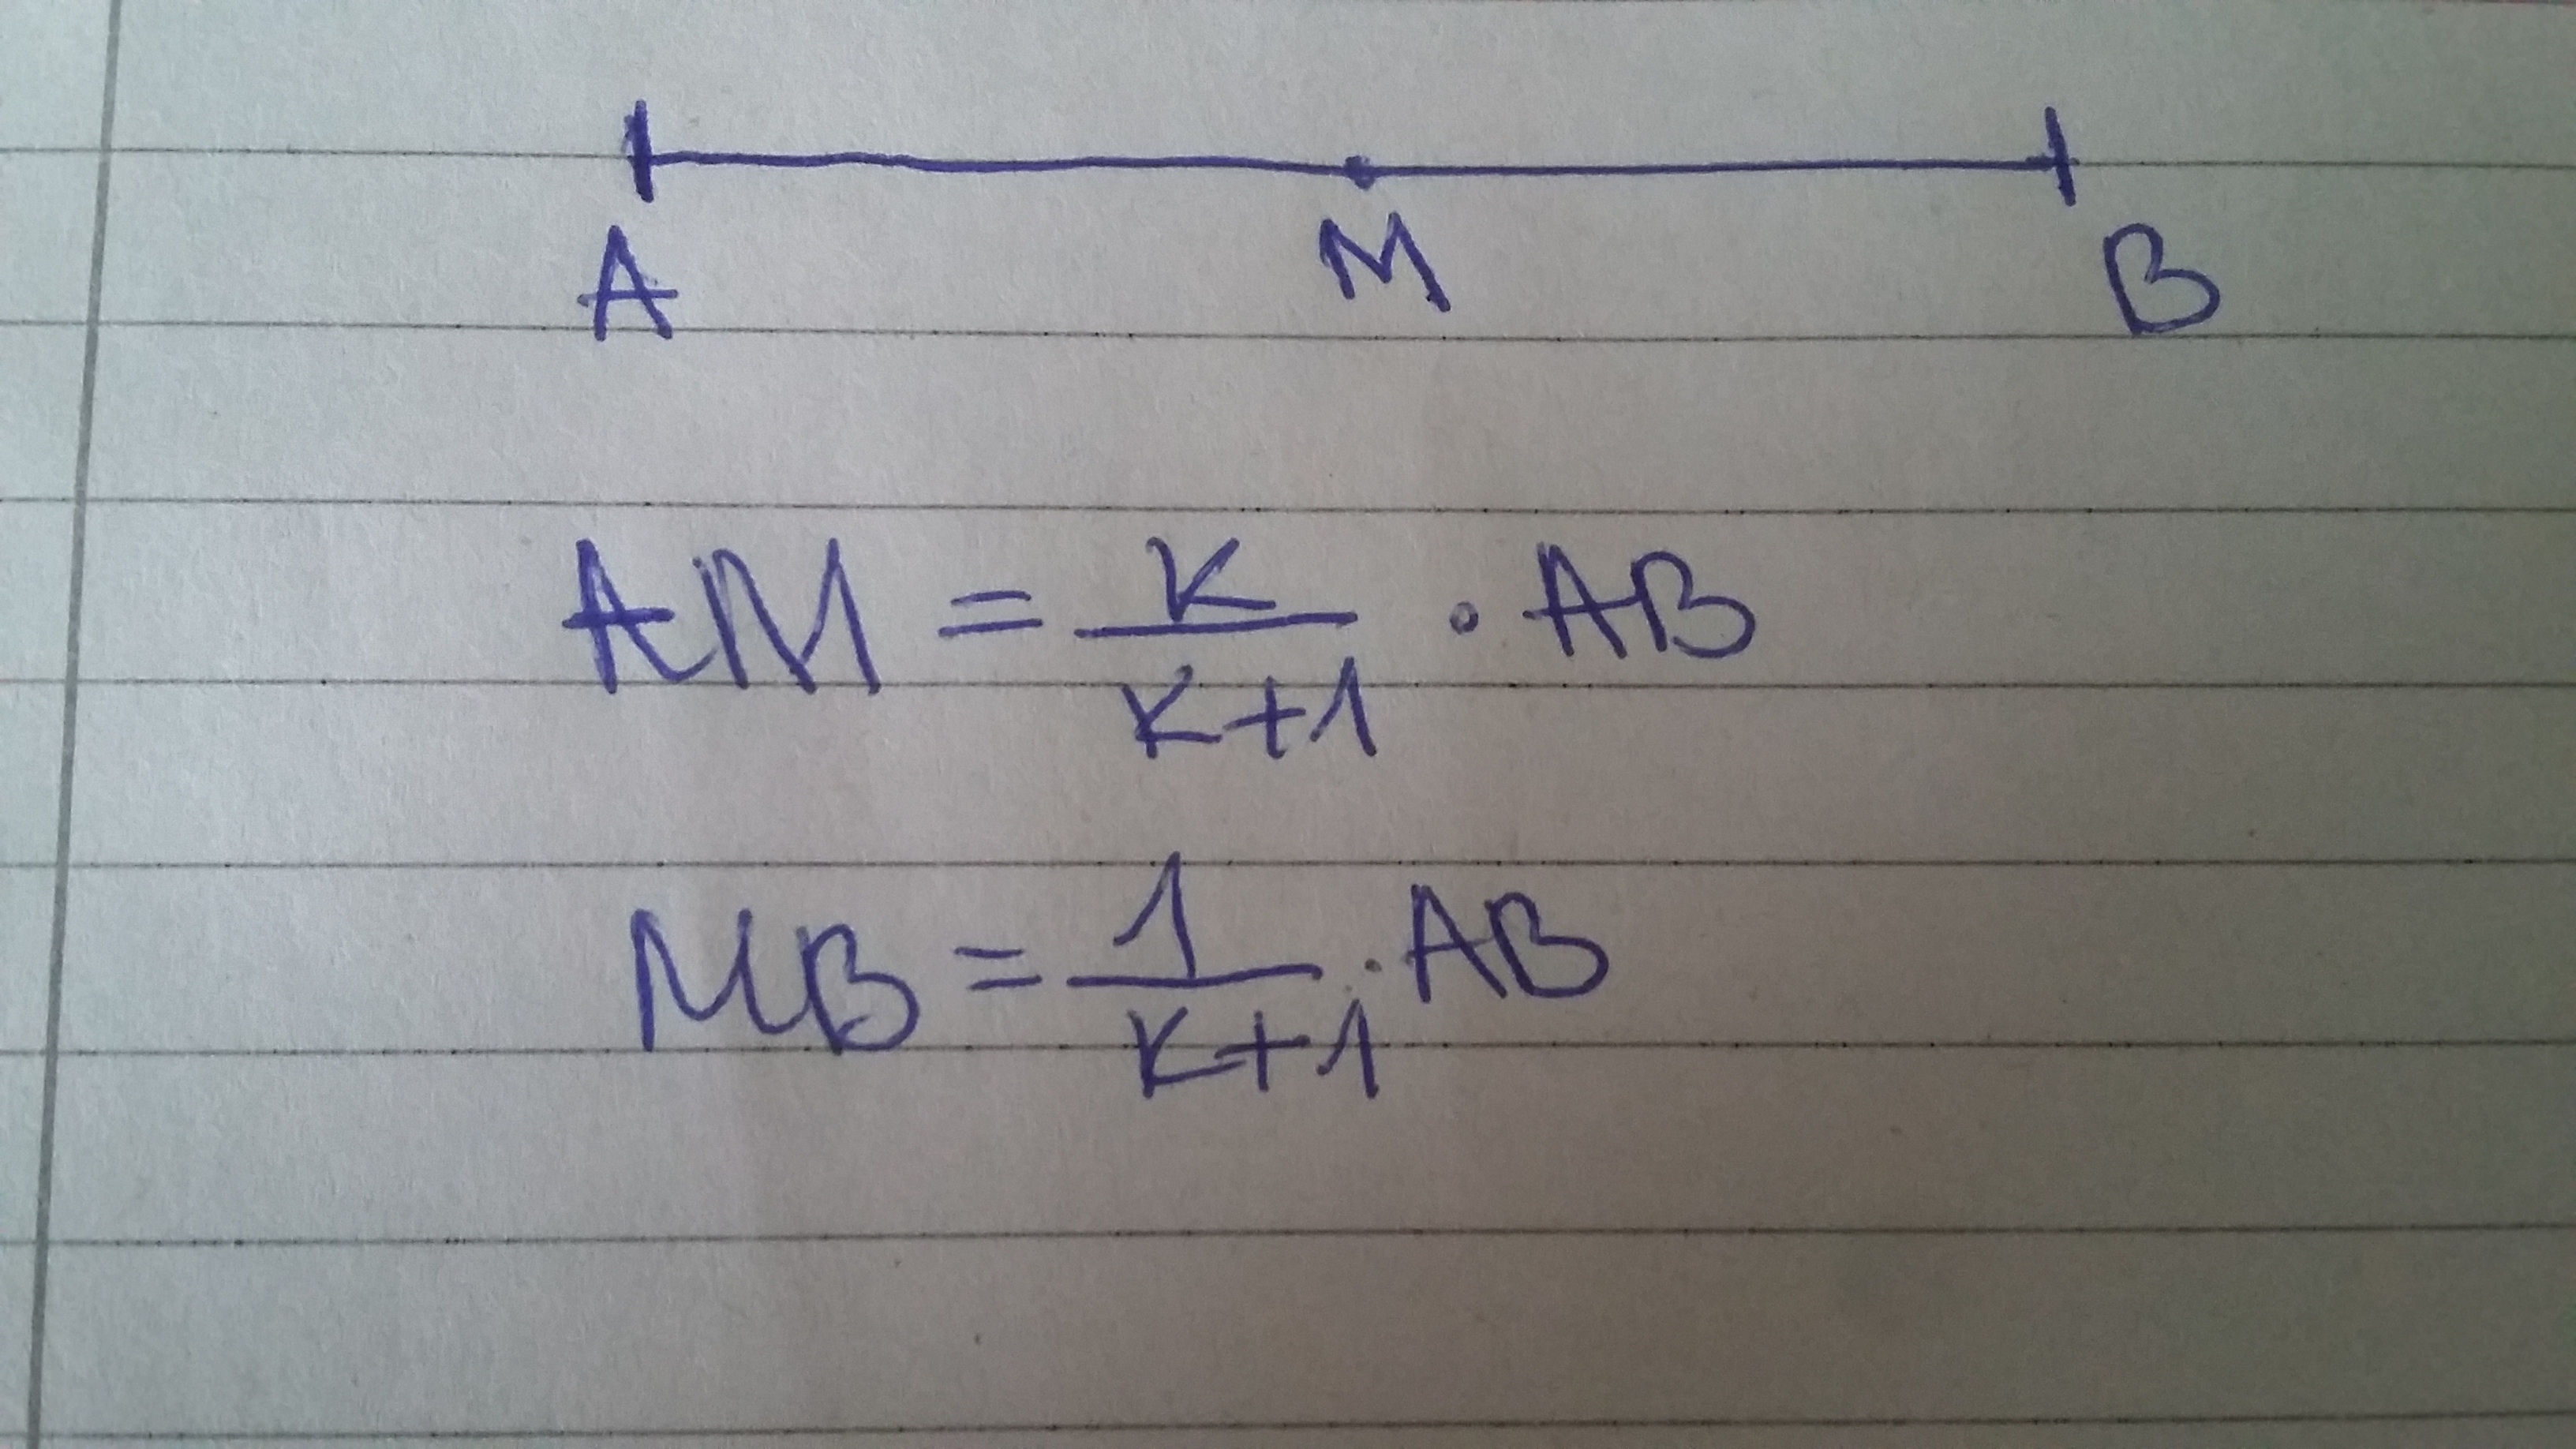 A M B
AM = K/K+1 · AB
MB = 1/K+1 · AB